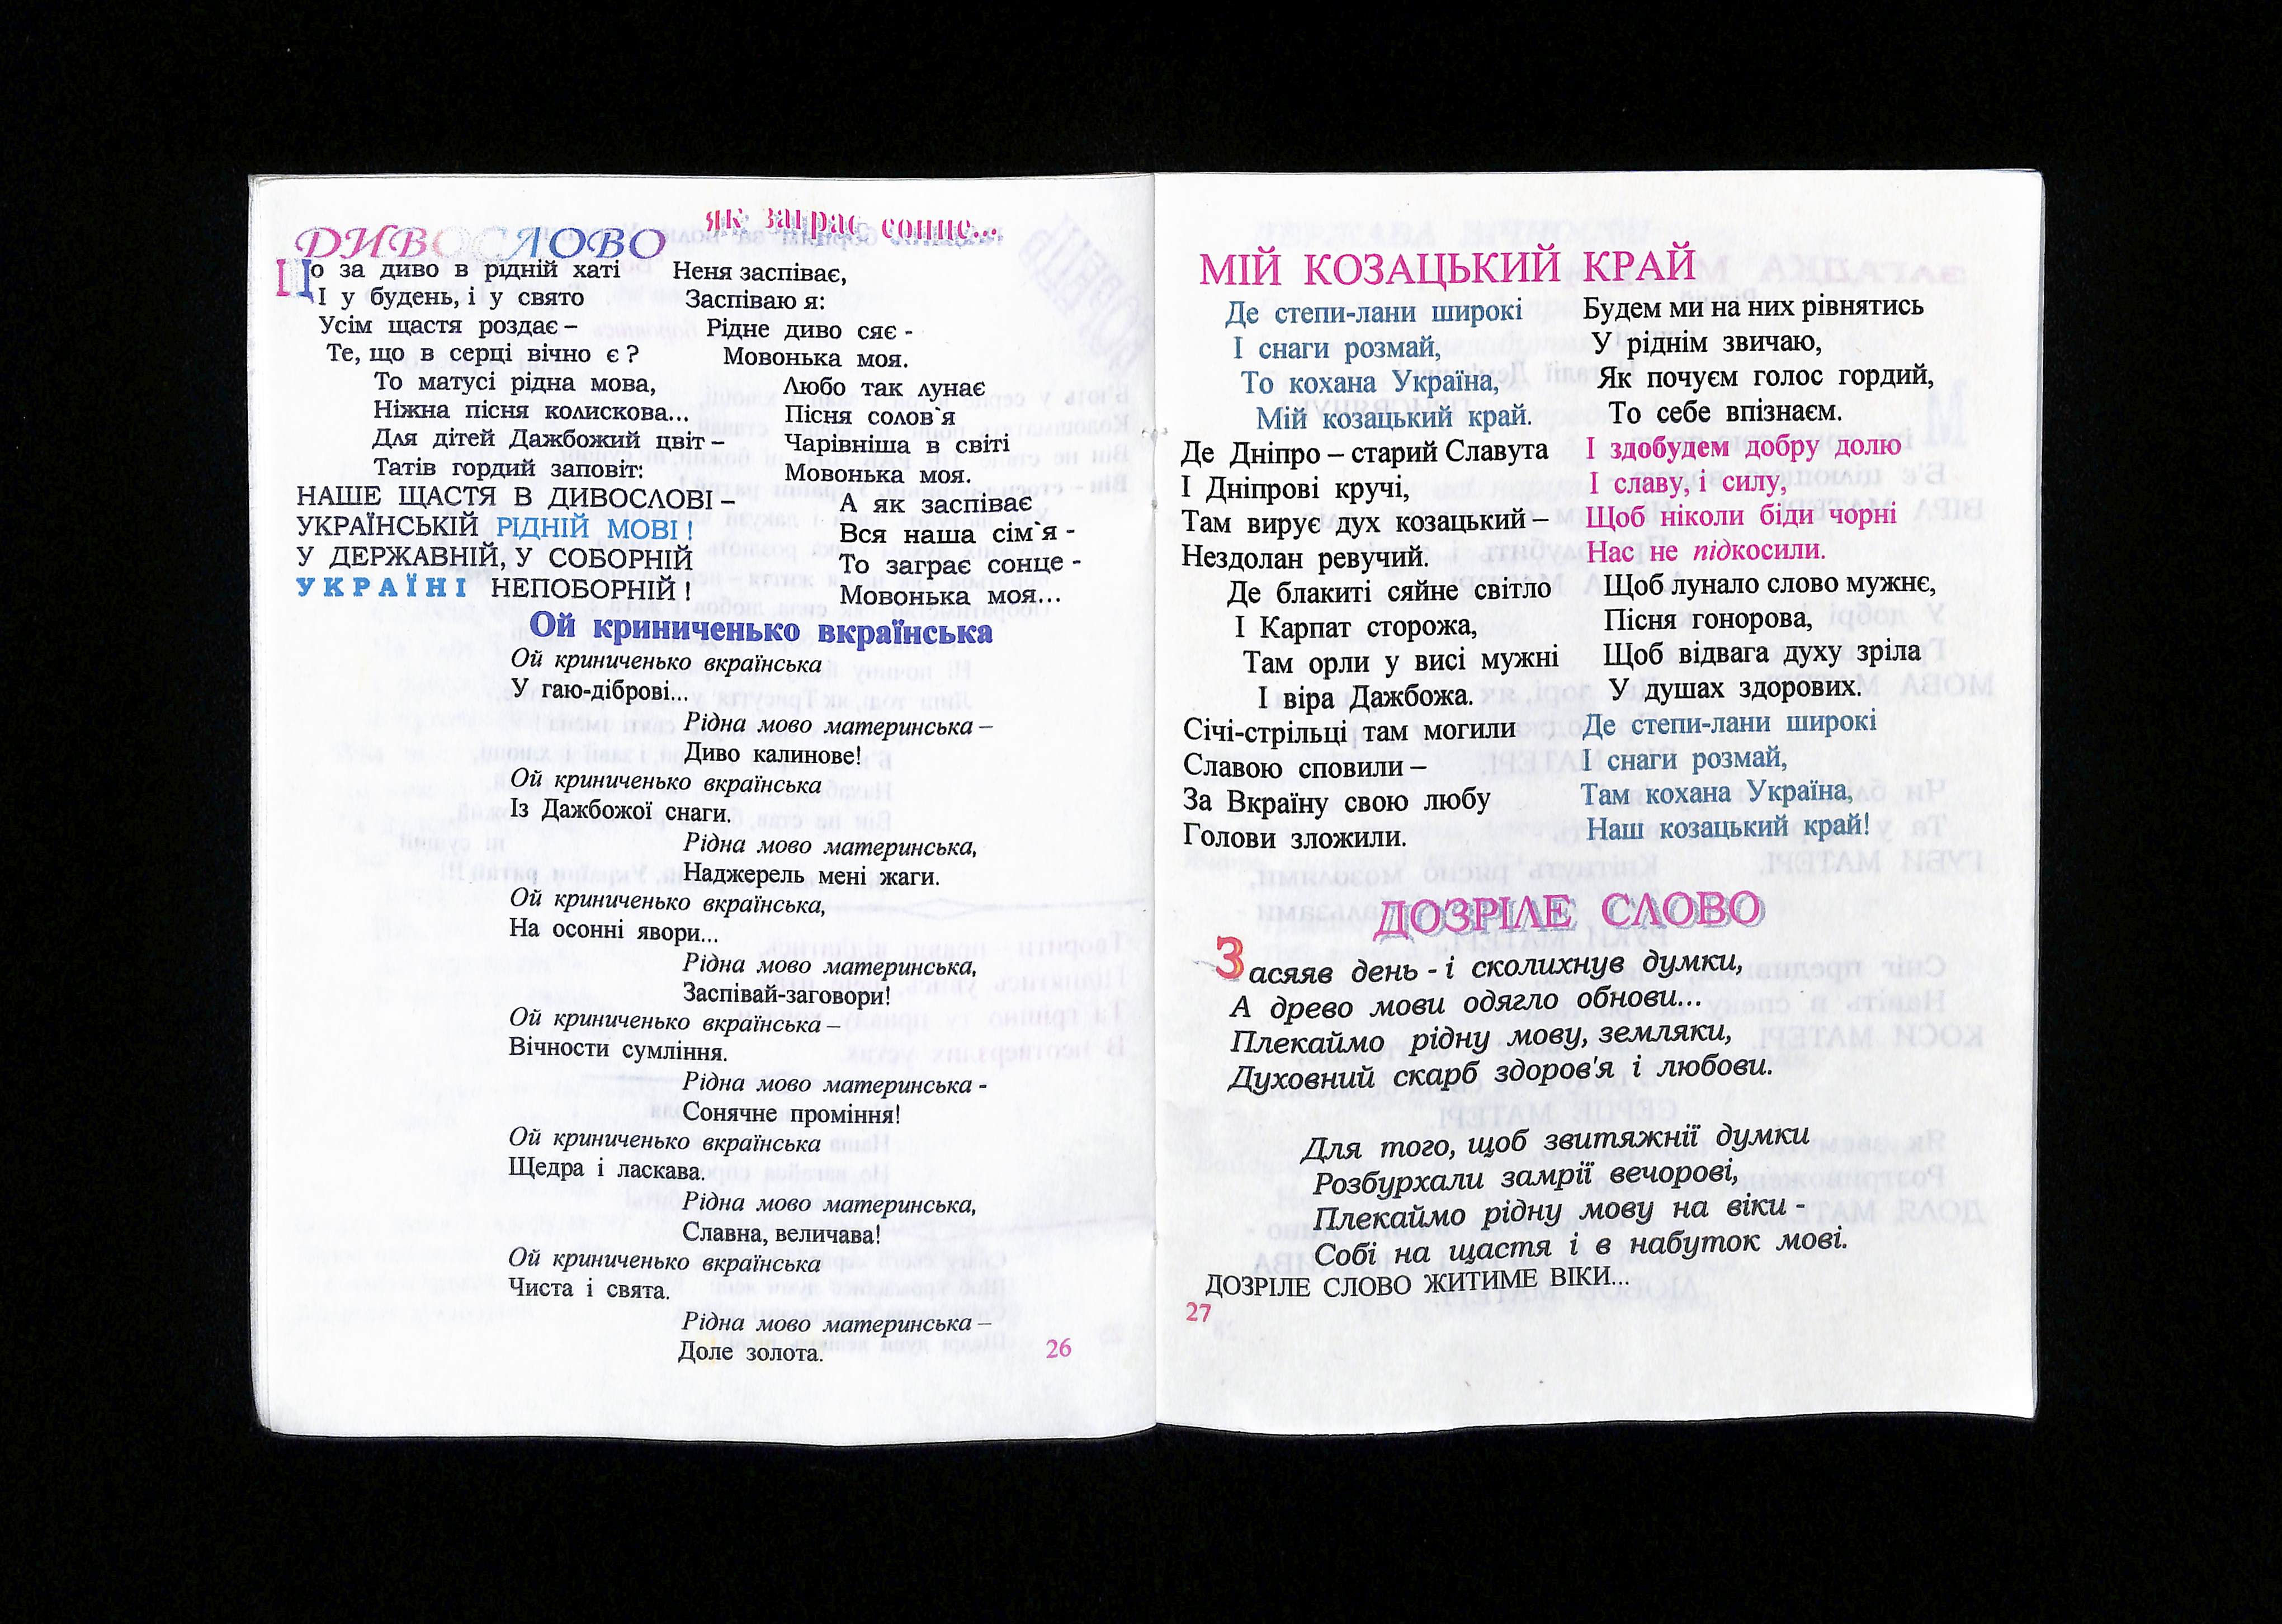 ДИВОСЛОВО
Що за диво в рідній хаті
І у будень, і у свято
Усім щастя роздає –
Те, що в серці вічно є ?
То матусі рідна мова,
Ніжна пісня колискова...
Для дітей Дажбожий цвіт –
Татів гордий заповіт:
НАШЕ ЩАСТЯ В ДИВОСЛОВІ –
УКРАЇНСЬКІЙ РІДНІЙ МОВІ !
У ДЕРЖАВНІЙ, У СОБОРНІЙ
УКРАЇНІ НЕПОБОРНІЙ !
як заграє сонце...
Неня заспіває,
Заспіваю я:
Рідне диво сяє -
Мовонька моя.
Любо так лунає
Пісня солов`я
Чарівніша в світі
Мовонька моя.
А як заспіває
Вся наша сім`я -
То заграє сонце -
Мовонька моя...
Ой криниченько вкраїнська
Ой криниченько вкраїнська
У гаю-діброві...
Рідна мово материнська –
Диво калинове!
Ой криниченько вкраїнська
Із Дажбожої снаги.
Рідна мово материнська,
Наджерель мені жаги.
Ой криниченько вкраїнська,
На осонні явори...
Рідна мово материнська,
Заспівай-заговори!
Ой криниченько вкраїнська –
Вічности сумління.
Рідна мово материнська -
Сонячне проміння!
Ой криниченько вкраїнська
Щедра і ласкава.
Рідна мово материнська,
Славна, величава!
Ой криниченько вкраїнська
Чиста і свята.
Рідна мово материнська –
Доле золота.
26
МІЙ КОЗАЦЬКИЙ КРАЙ
Де степи-лани широкі
І снаги розмай,
То кохана Україна,
Мій козацький край.
Де Дніпро – старий Славута
І Дніпрові кручі,
Там вирує дух козацький –
Нездолан ревучий.
Де блакиті сяйне світло
І Карпат сторожа,
Там орли у висі мужні
І віра Дажбожа.
Січі-стрільці там могили
Славою сповили –
За Вкраїну свою любу
Голови зложили.
Будем ми на них рівнятись
У ріднім звичаю,
Як почуєм голос гордий,
То себе впізнаєм.
І здобудем добру долю
І славу, і силу,
Щоб ніколи біди чорні
Нас не підкосили.
Щоб лунало слово мужнє,
Пісня гонорова,
Щоб відвага духу зріла
У душах здорових.
Де степи-лани широкі
І снаги розмай,
Там кохана Україна,
Наш козацький край!
ДОЗРІЛЕ СЛОВО
Засяяв день - і сколихнув думки,
А древо мови одягло обнови...
Плекаймо рідну мову, земляки,
Духовний скарб здоров'я і любови.
Для того, щоб звитяжнії думки
Розбурхали замрії вечорові,
Плекаймо рідну мову на віки -
Собі на щастя і в набуток мові.
ДОЗРІЛЕ СЛОВО ЖИТИМЕ ВІКИ...
27